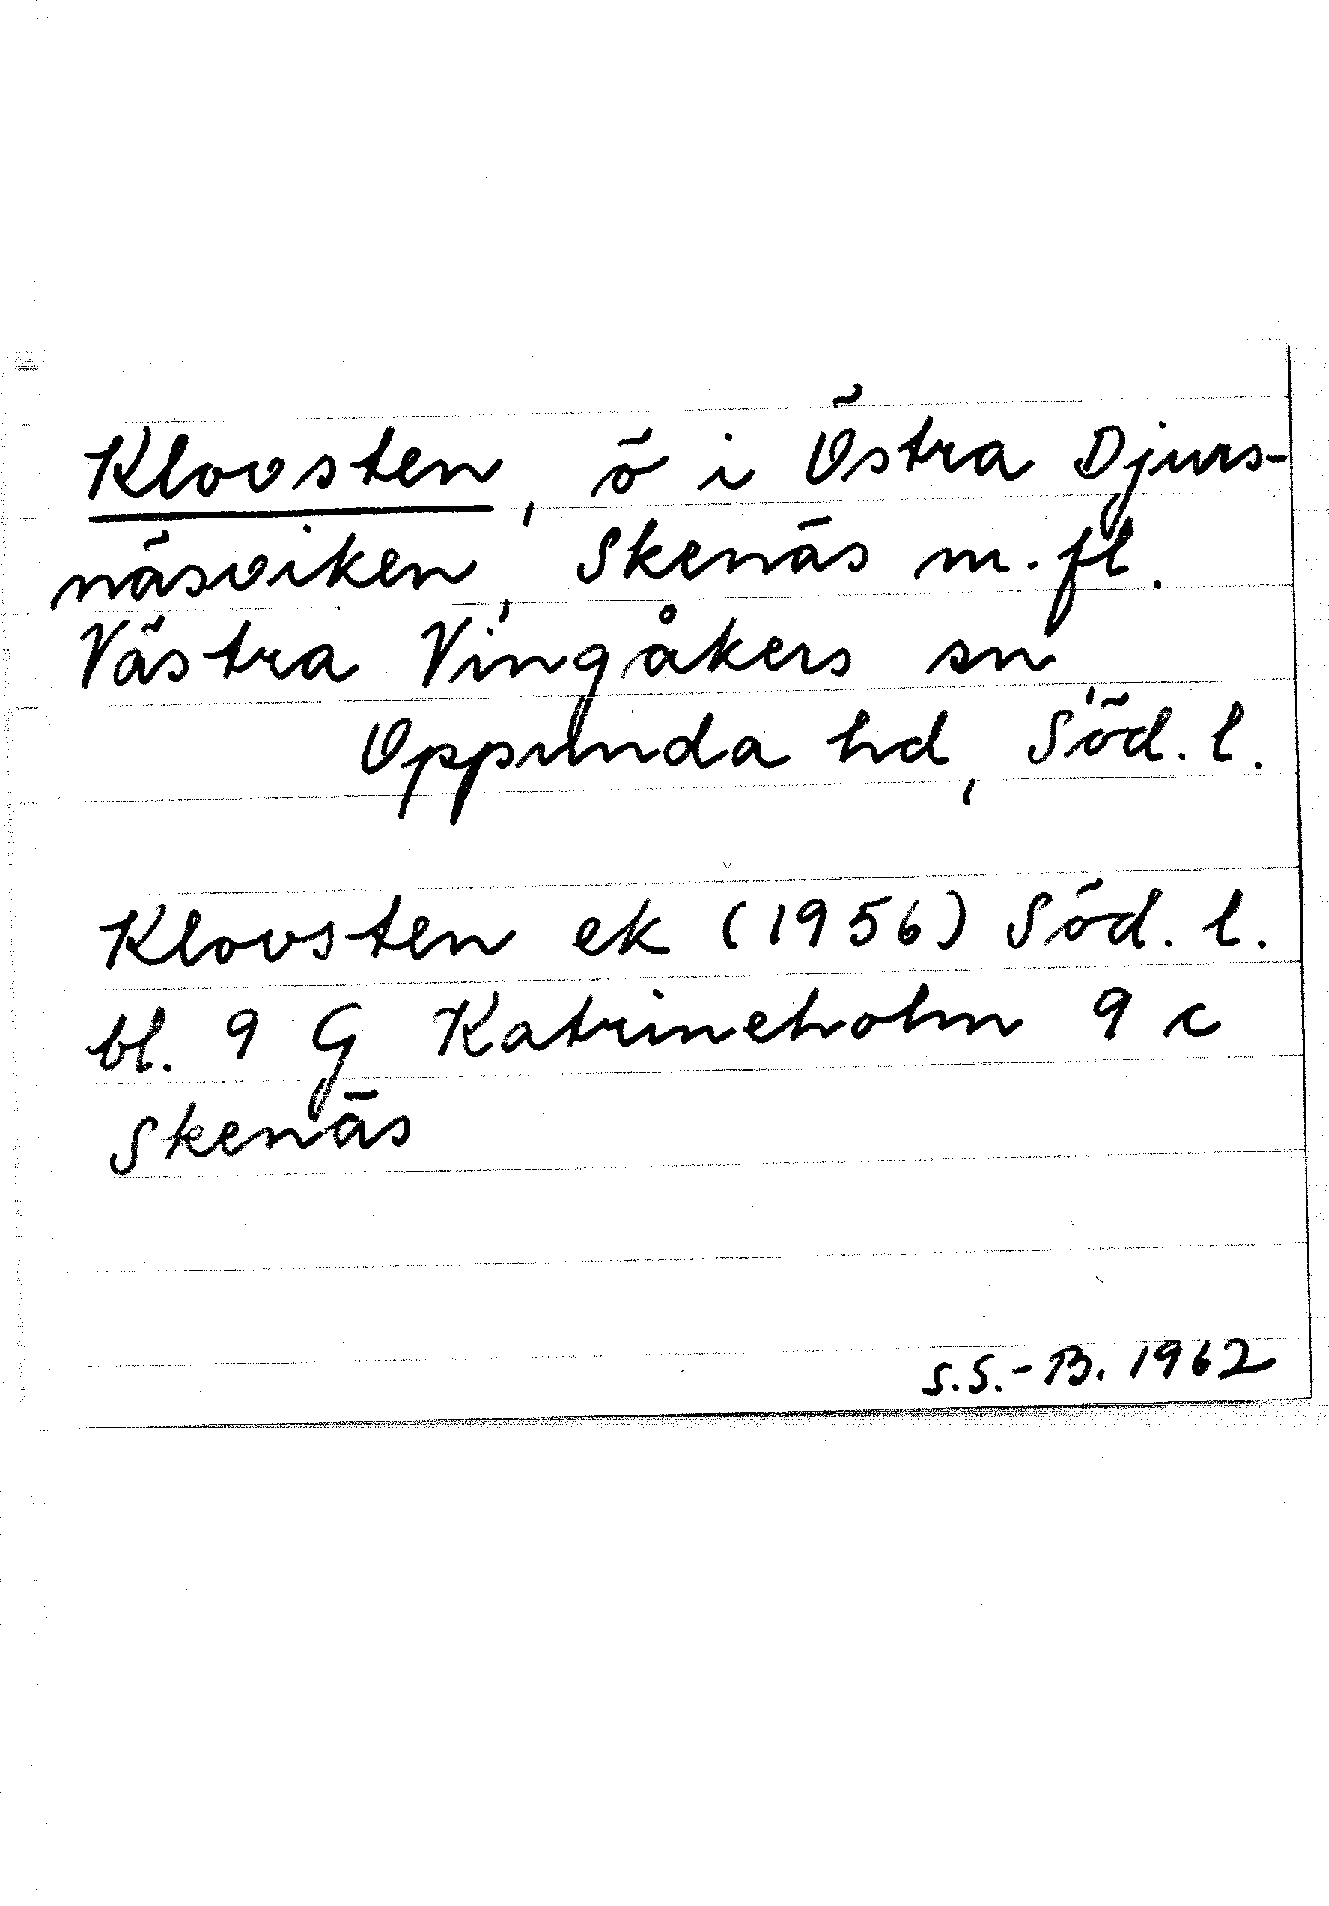 Klovsten, ö i Östra Djurs-
näsviken, Skenäs m.fl.
Västra Vingåkers sn
Oppunda hd, Söd. l.
Klovsten ek (1956) Söd. l.
bl. 9 G Katrineholm 9 c
Skenäs
S.S.-B. 1962